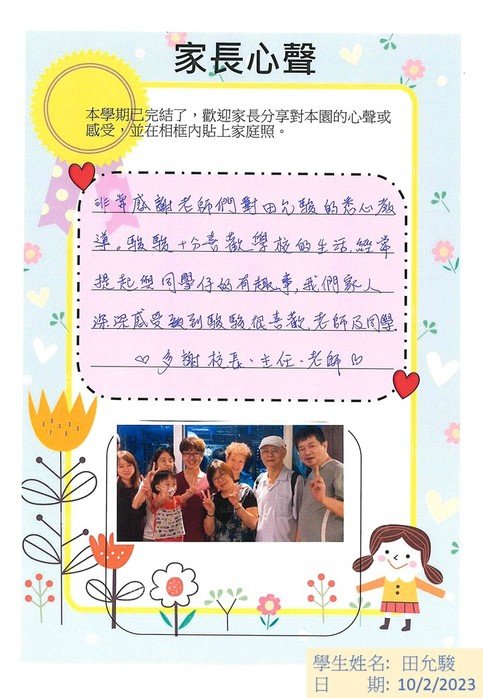 家長心聲
本學期已完結了，歡迎家長分享對本園的心聲或
感受，並在相框內貼上家庭照。
非常感謝老師們對田允駿的悉心教
導。駿駿十分喜歡學校的生活,經常
提起與同學仔的有趣事,我們家人
深深感受到駿駿很喜歡老師及同學
♡多謝校長、主任、老師♡
學生姓名: 田允駿
日 期: 10/2/2023